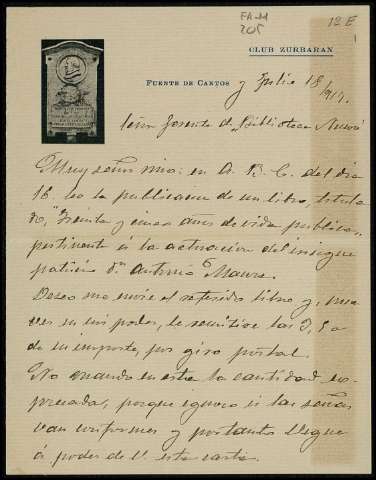 FA-M
205
12 E
CLUB ZURBARAN
FUENTE DE CANTOS y Julio 18/917.
Señor Gerente de "Biblioteca Nueva"
Muy señor mio: en A. B. C. del dia
16. veo la publicacion de un libro, titula
do, "Treinta y cinco años de vida publica,
pertinente á la actuacion del insigne
patricio Dn Antonio Maura.
Deseo me envie el referido libro y, una
vez en mi poder, le remitiré las 3,50
de su importe, por giro postal.
No mando en esta la cantidad ex-
presada, porque ignoro si las señas
van conformes y por tanto llegue
á poder de V. esta carta.